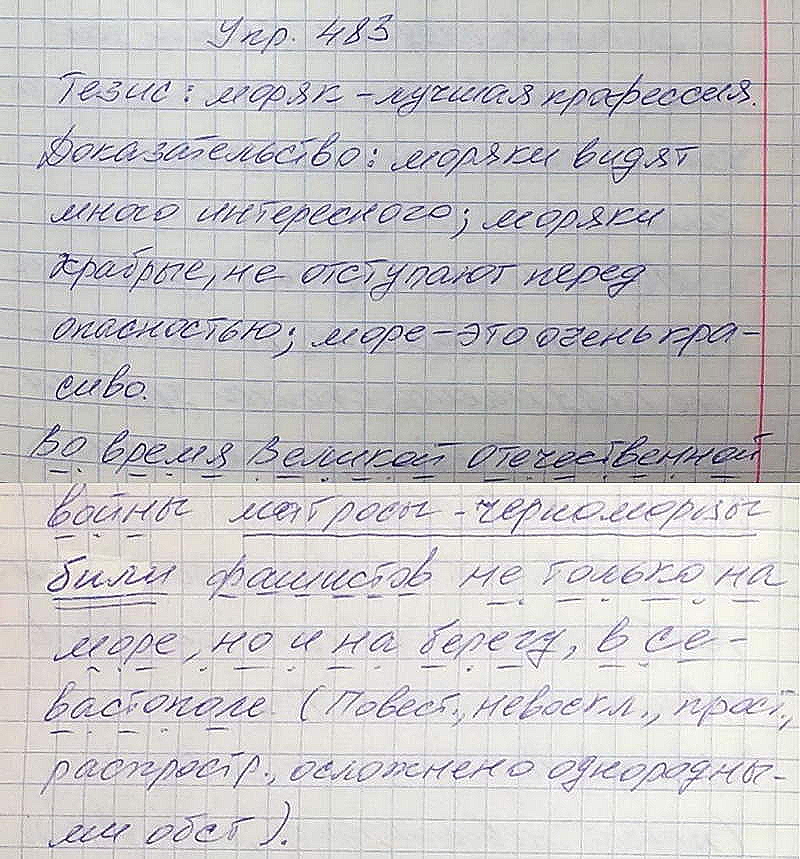 Упр. 483
Тезис: моряк – лучшая профессия.
Доказательство: моряки видят
много интересного; моряки
храбрые, не отступают перед
опасностью; море – это очень кра-
сиво.
Во время Великой Отечественной
войны матросы-черноморцы
били фашистов не только на
море, но и на берегу, в Се-
вастополе. (Повест., невоскл., прост.,
распростр., осложнено однородны-
ми обст).